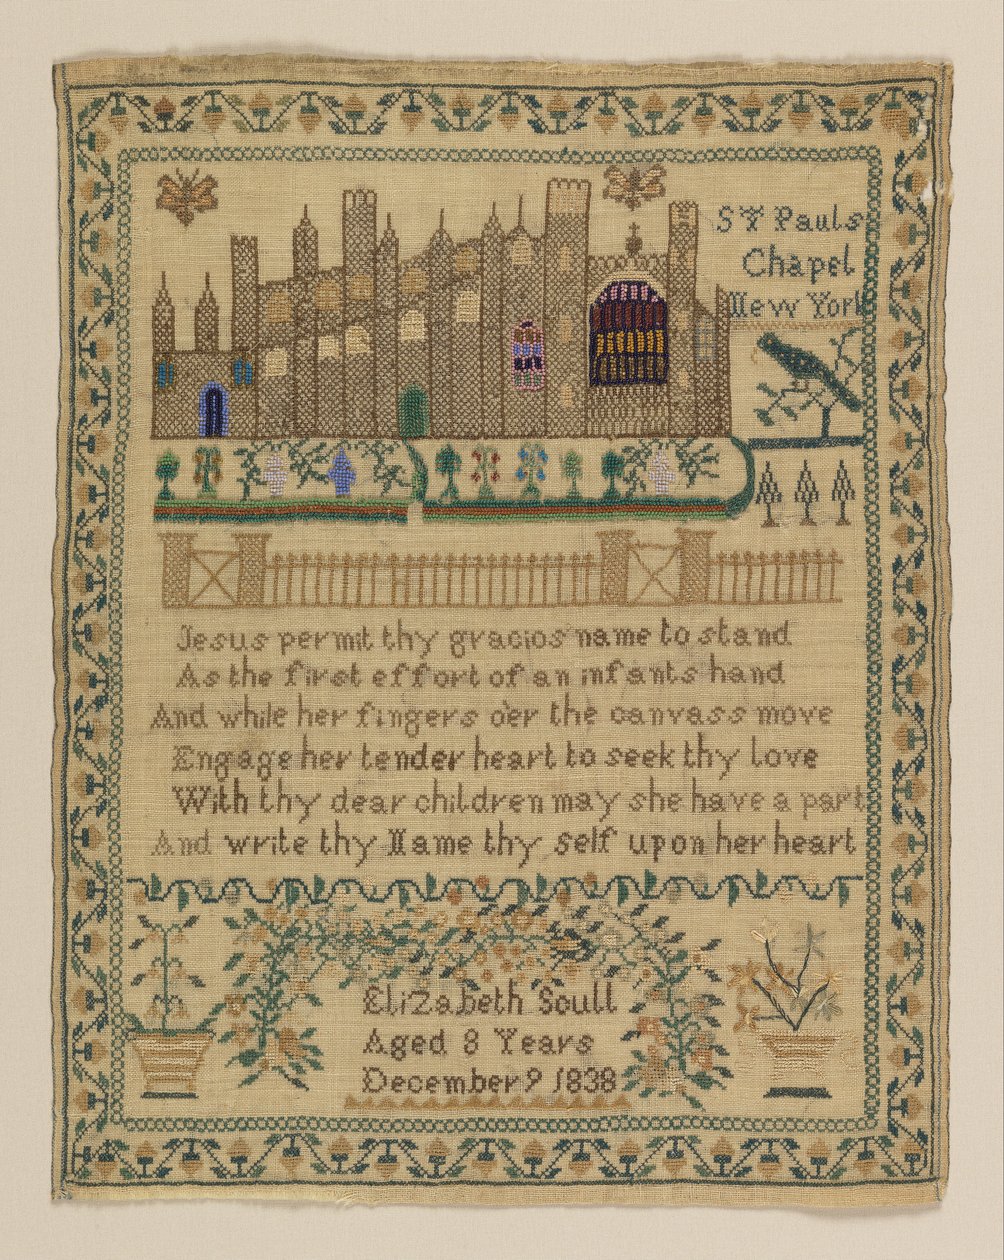 St Pauls
Chapel
New York
Jesus permit thy gracios name to stand
As the first effort of an infants hand
And while her fingers o'er the canvass move
Engage her tender heart to seek thy love
With thy dear children may she have a part
And write thy Name thy self upon her heart
Elizabeth Scull
Aged 8 Years
December 9 1838